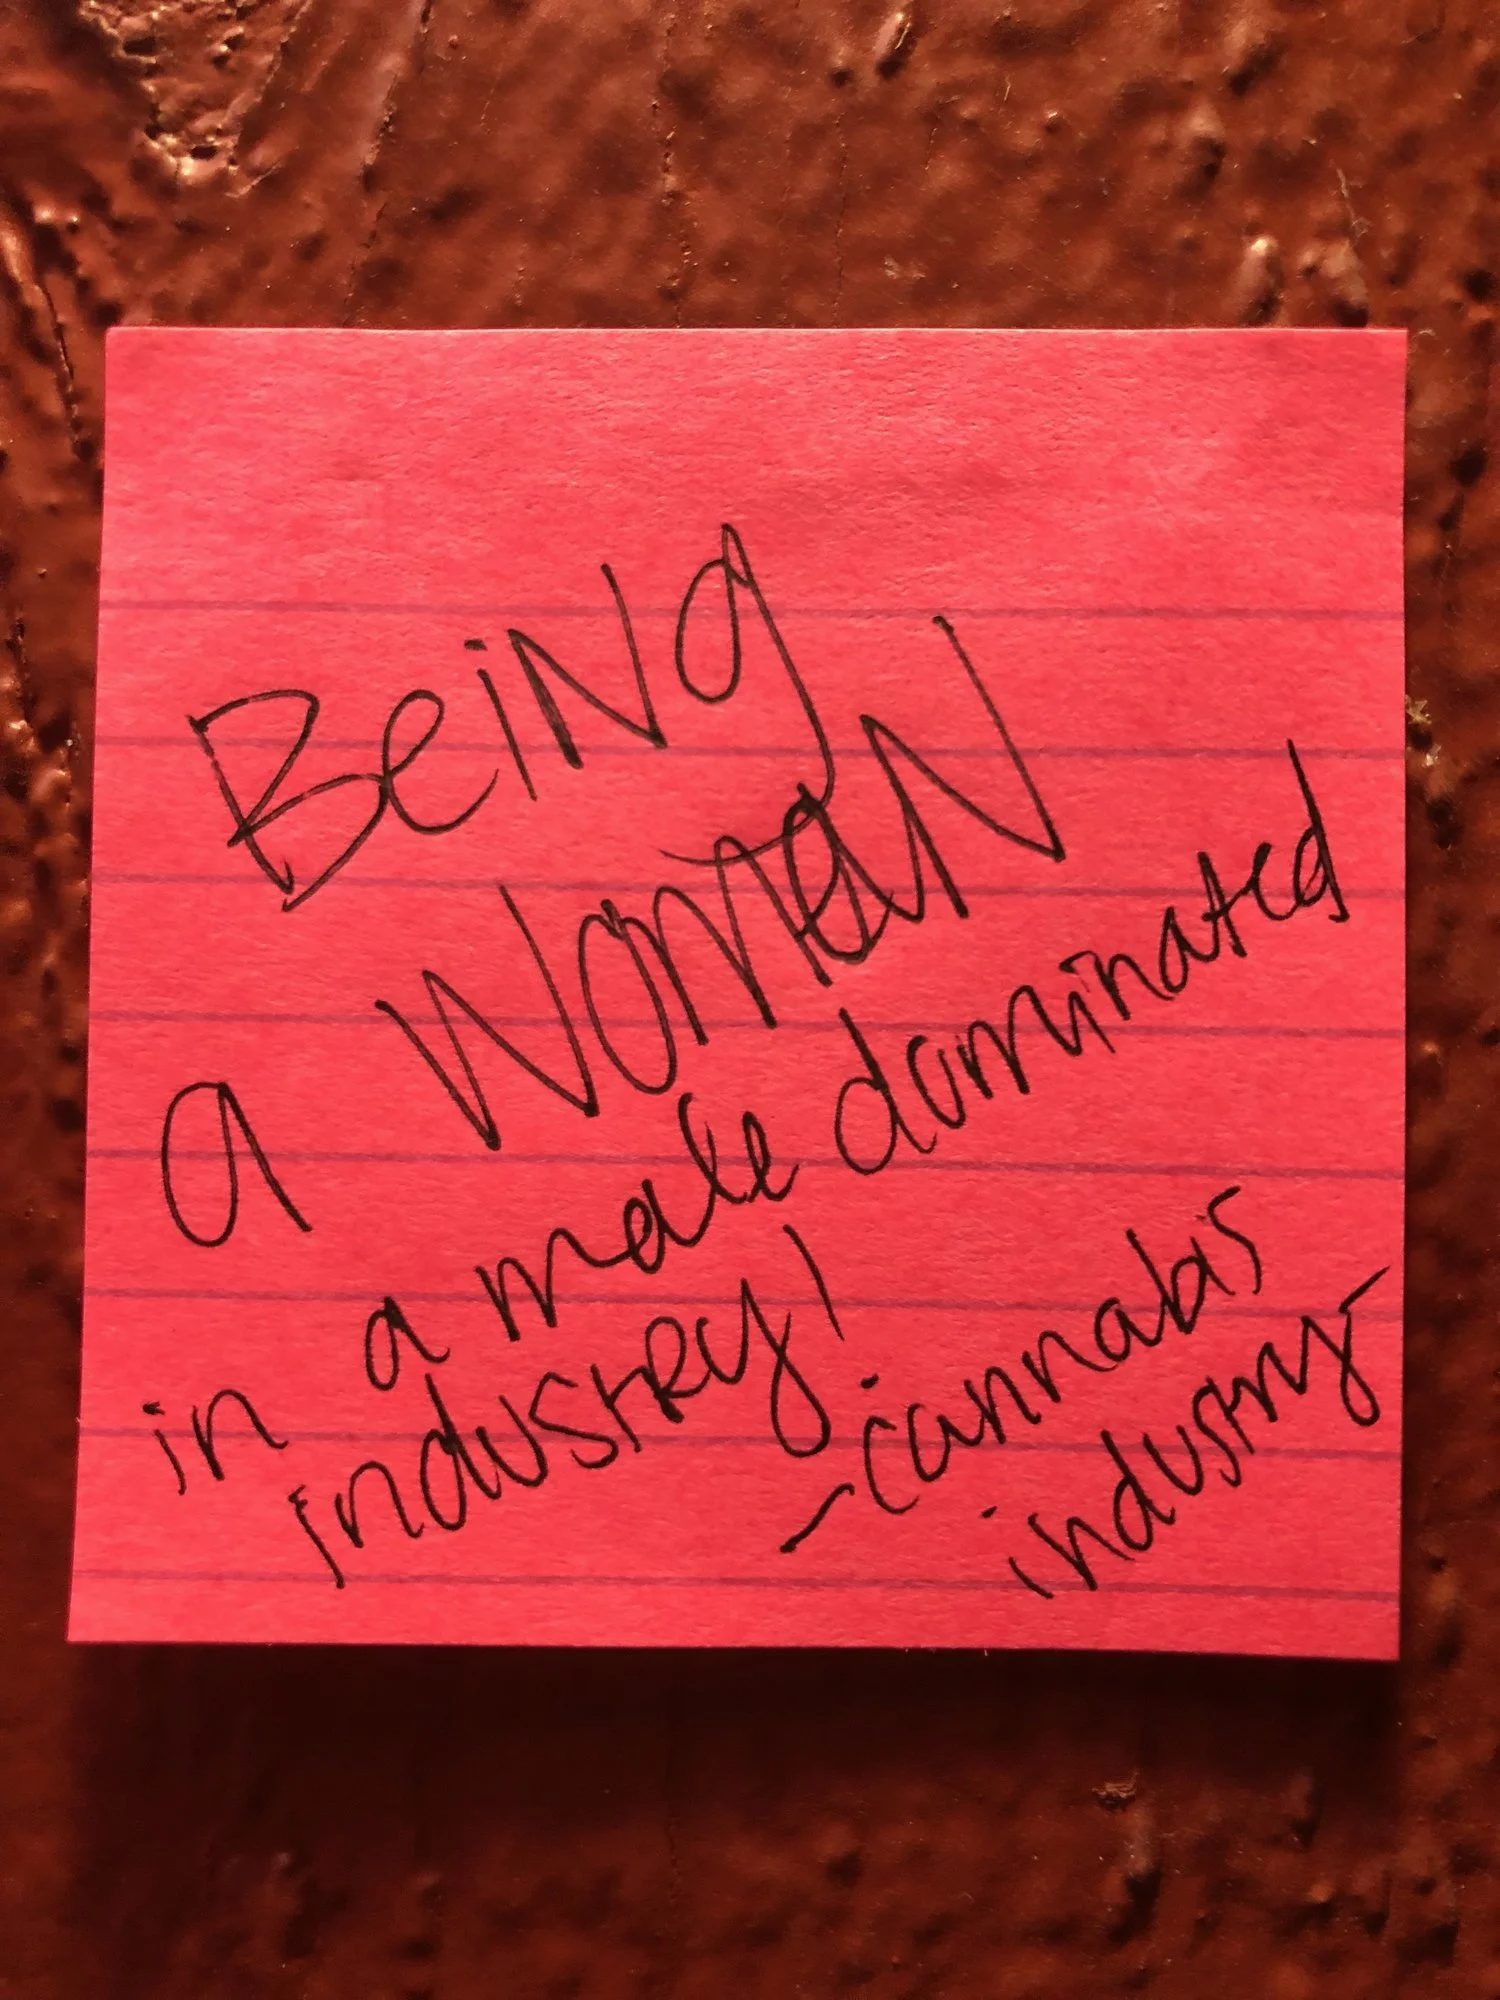 Being
a Women
in a male dominated
industry!
- cannabis
industry-